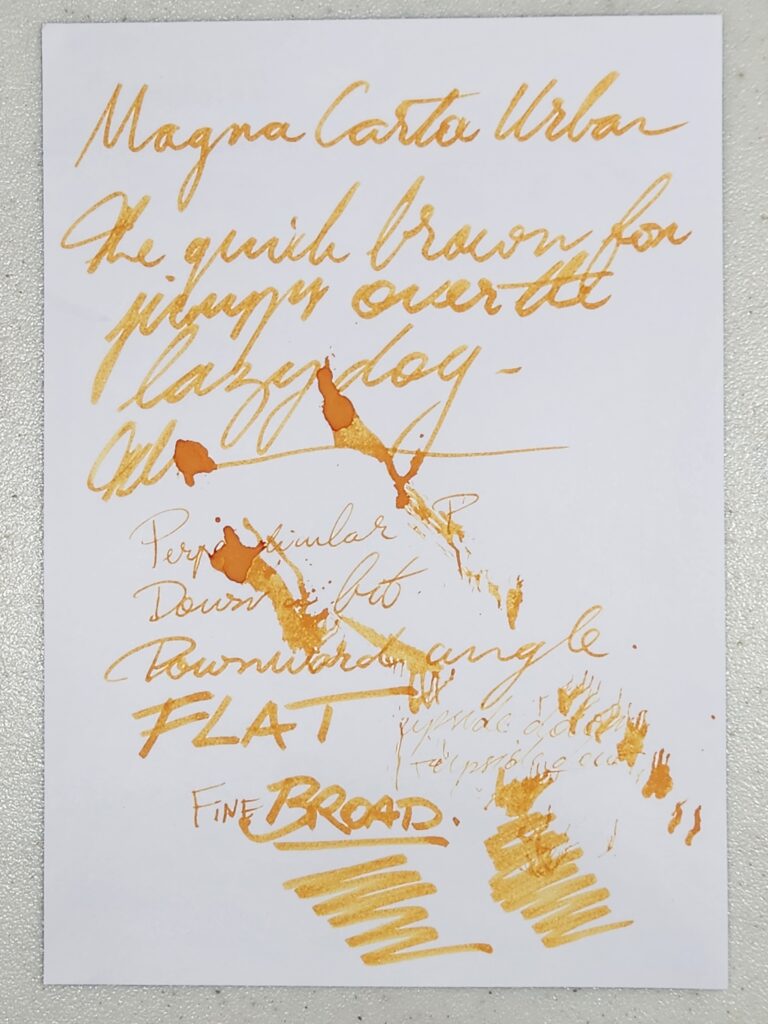 Magna Carta Urban
The quick brown fox
jumps over the
lazy dog -
Perpendicular P
Down a bit
Downward angle.
FLAT
upside down
upside down
FINE BROAD.